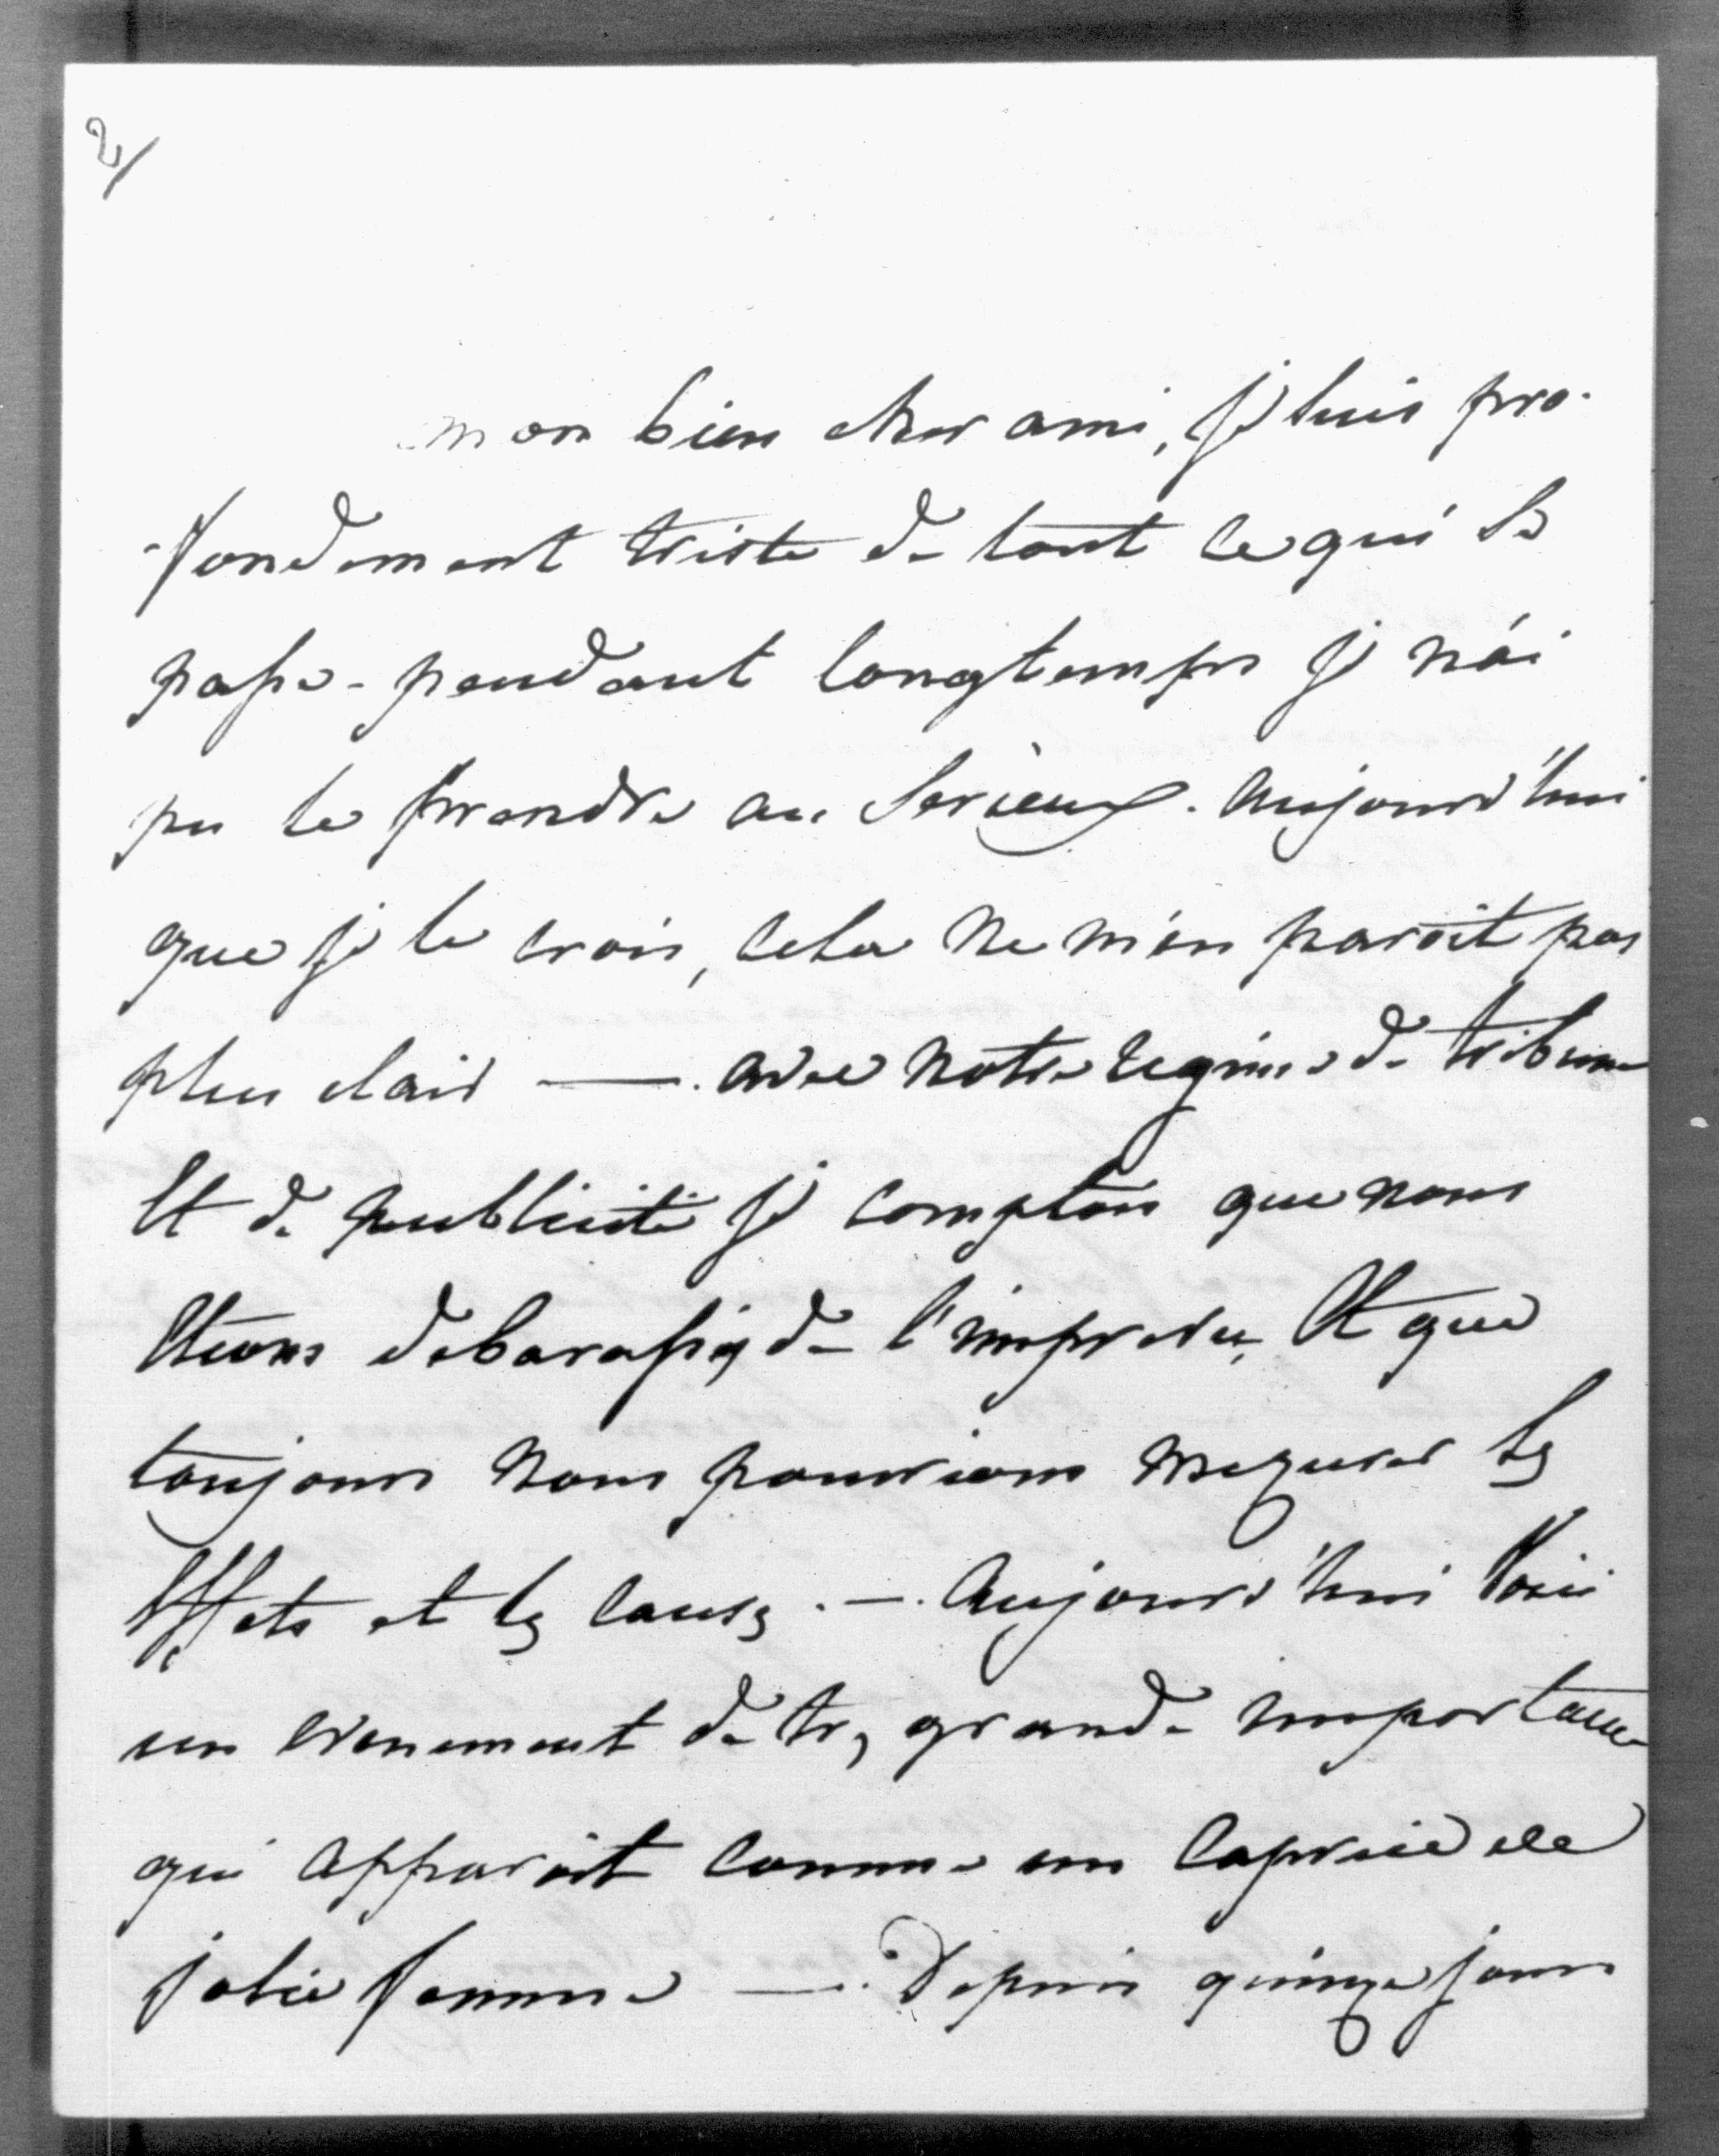 2/
mon bien cher ami, je suis pro-
-fondement triste de tout ce qui se
passe - pendant longtemps je n'ai
pu le prendre au serieux. aujourd'hui
que je le crois, cela ne m'en paroit pas
plus clair —. avec notre regime de tribune
et de publicité je comptois que nous
etions debarassés de l'imprevu, et que
toujours nous pourrions mezurer les
effets et les causes. —. aujourd'hui voici
un evenement de très grande importance
qui apparoit comme un caprice de
jolie femme —. Depuis quinze jours